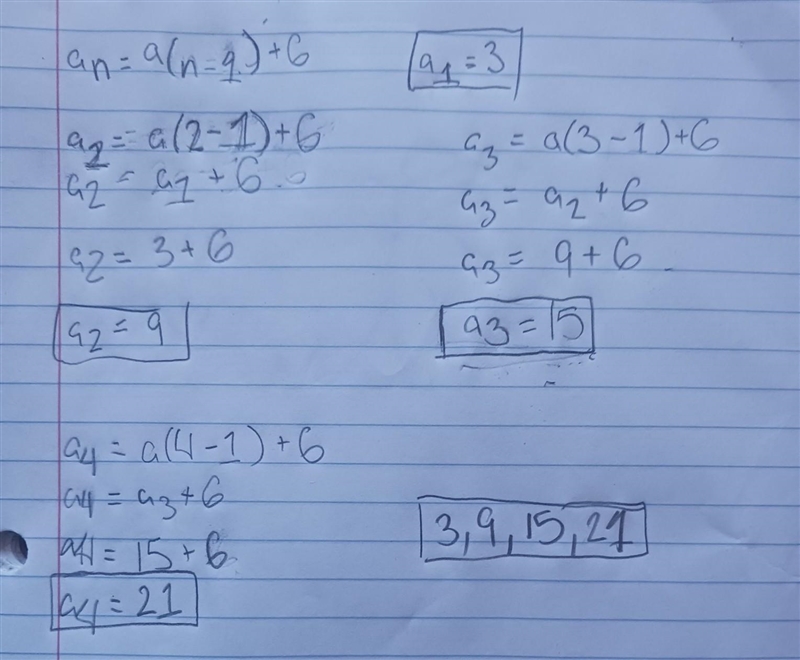 an = a(n-1)+6
a1 = 3
a2 = a(2-1)+6
a2 = a1 + 6
a2 = 3+6
a2 = 9
a3 = a(3-1)+6
a3 = a2 + 6
a3 = 9+6
a3 = 15
a4 = a(4-1)+6
a4 = a3+6
a4 = 15+6
a4 = 21
3, 9, 15, 21